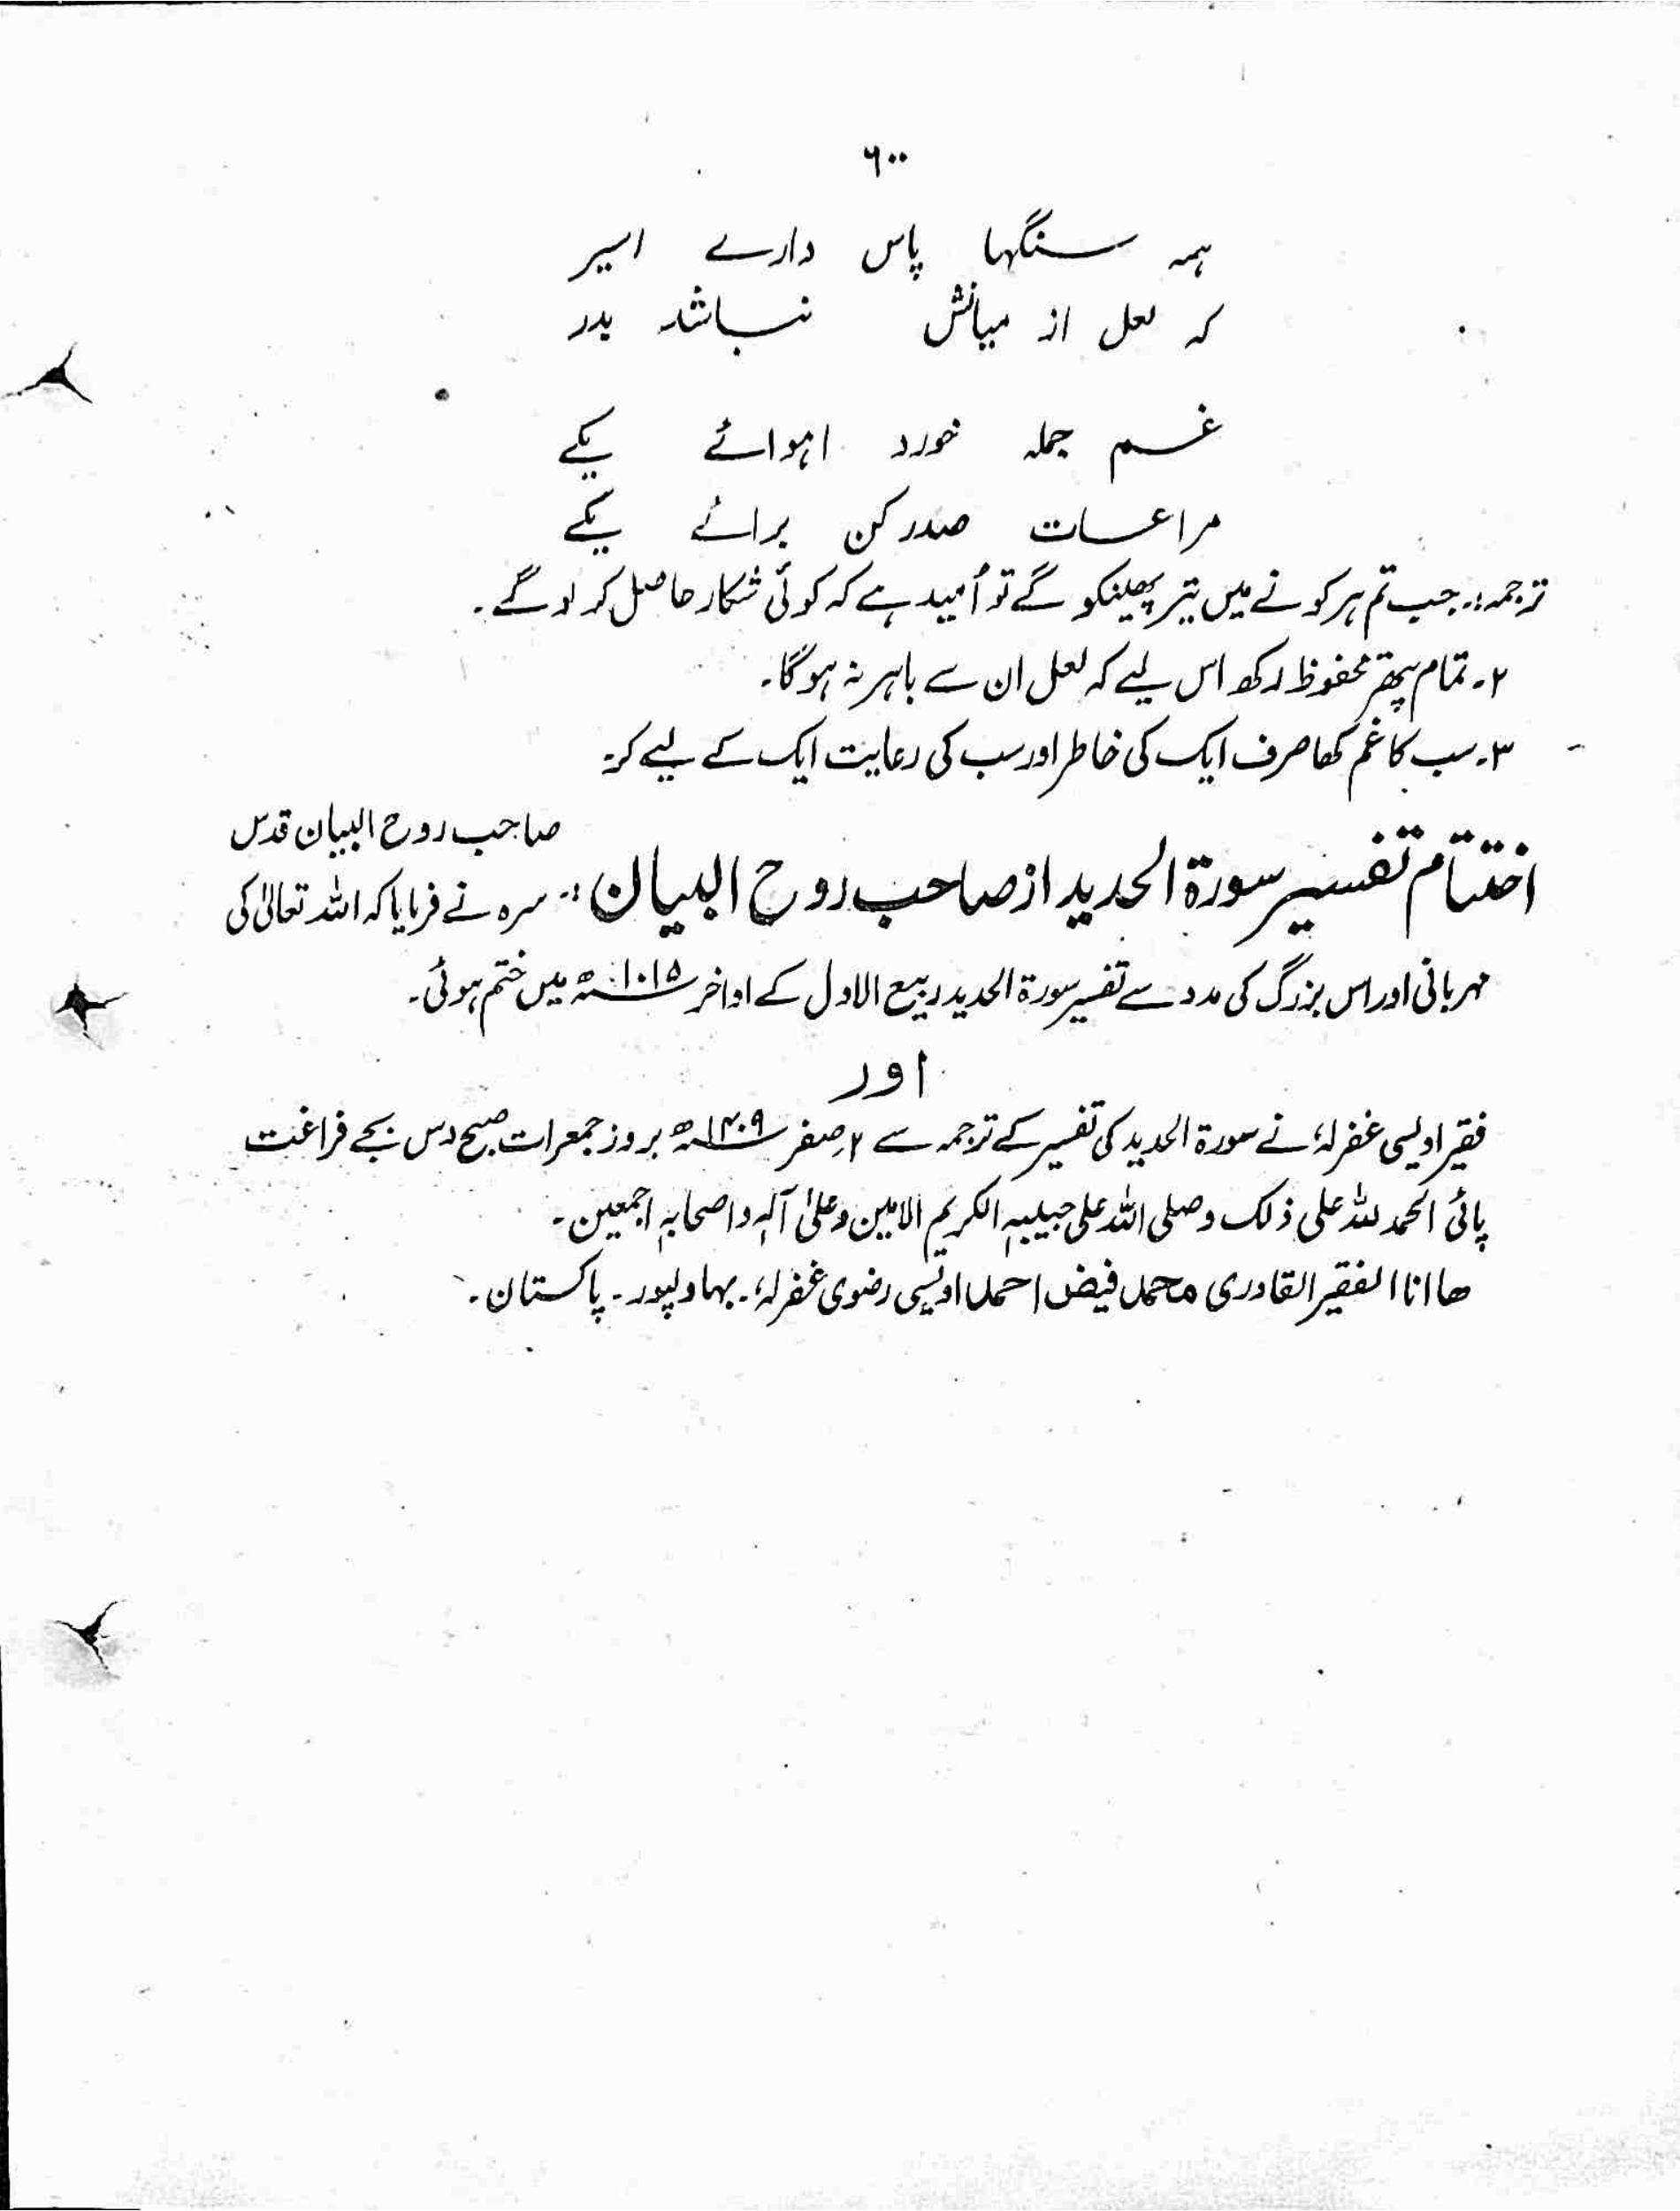 ۶۰۰
ہمہ سنگہا پاس دارے اسیر
کہ لعل از میانش نباشد بدر
غم جملہ خورد اہوائے یکے
مراعات صدر کن برائے یکے
ترجمہ:۔ جب تم ہر کونے میں تیر پھینکو گے تو اُمید ہے کہ کوئی شکار حاصل کر لو گے۔
۲۔ تمام پتھر محفوظ رکھ اس لیے کہ لعل ان سے باہر نہ ہوگا۔
۳۔ سب کا غم کھا صرف ایک کی خاطر اور سب کی رعایت ایک کے لیے کر۔
اختتام تفسیر سورۃ الحدید از صاحب روح البیان :۔ صاحب روح البیان قدس
سرہ نے فرمایا کہ اللہ تعالیٰ کی
مہربانی اور اس بزرگ کی مدد سے تفسیر سورۃ الحدید ربیع الاول کے اواخر ۱۰۱۵ھ میں ختم ہوئی۔
اور
فقیر اویسی غفرلہٗ نے سورۃ الحدید کی تفسیر کے ترجمہ سے ۲ صفر ۱۴۰۹ھ بروز جمعرات صبح دس بجے فراغت
پائی الحمد للہ علی ذلک وصلی اللہ علی حبیبہ الکریم الامین وعلیٰ آلہٖ واصحابہٖ اجمعین۔
ھا انا الفقیر القادری محمد فیض احمد اویسی رضوی غفرلہٗ۔ بہاولپور۔ پاکستان۔